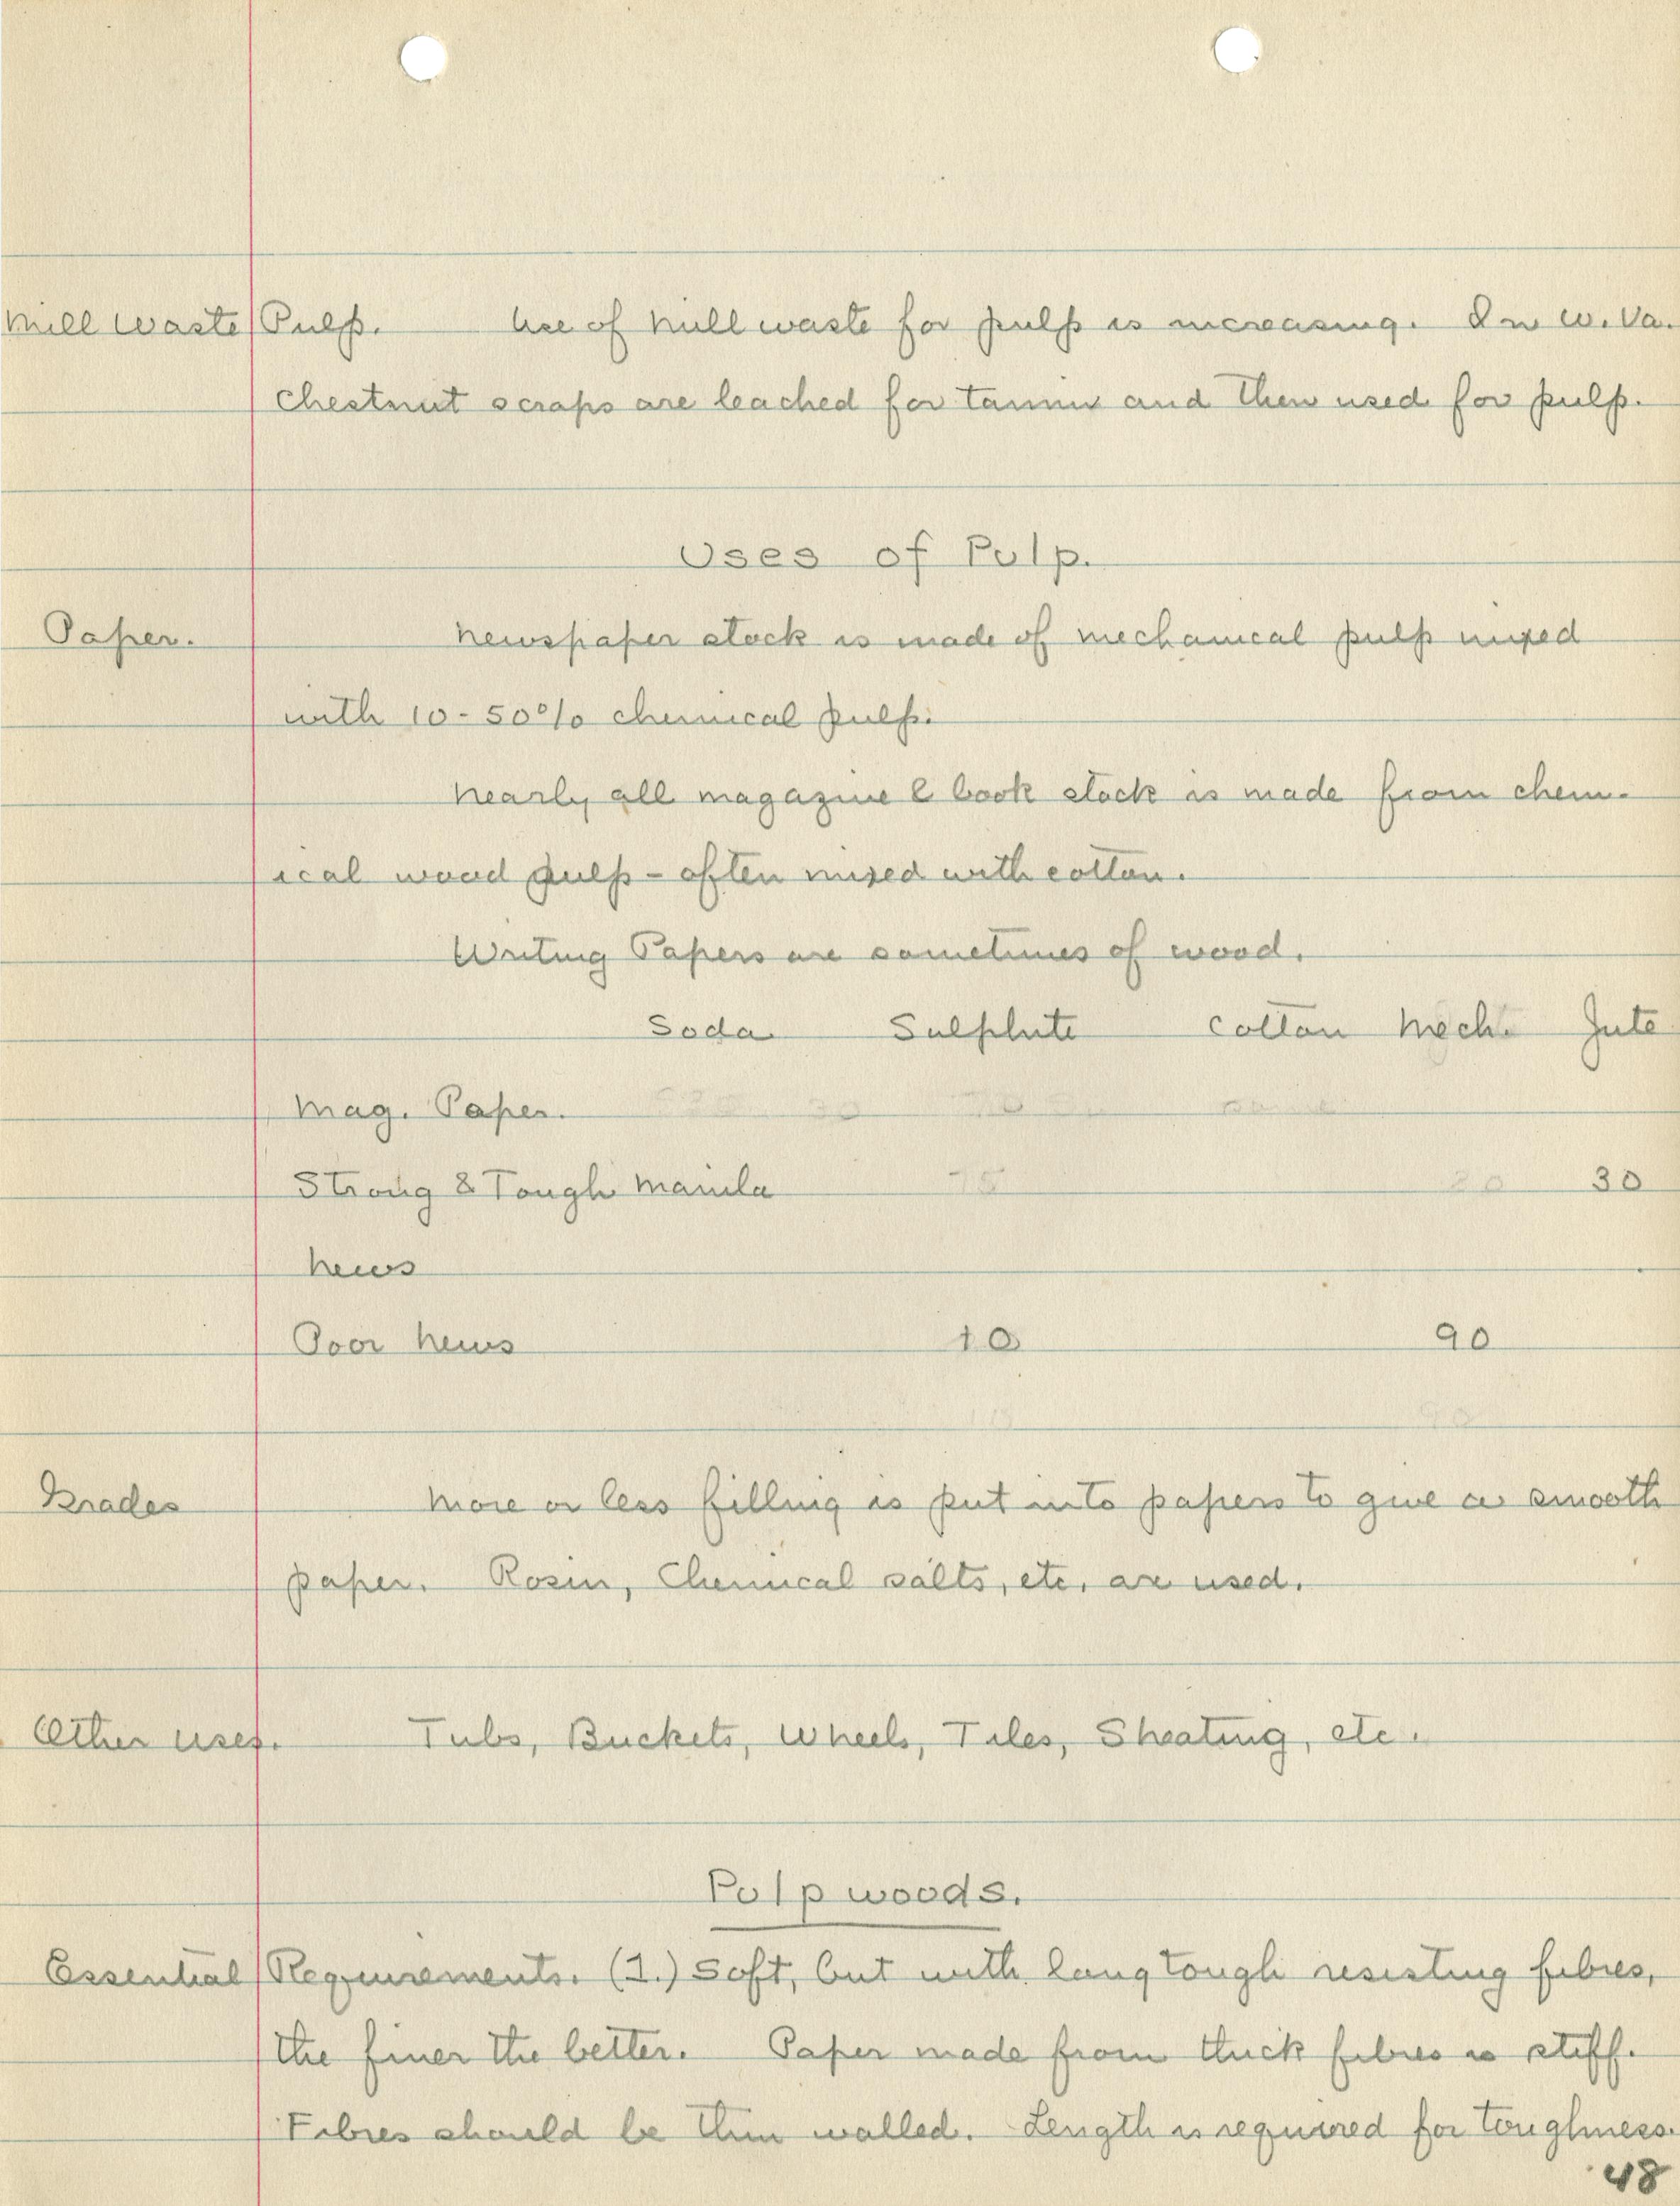 Mill Waste Pulp. Use of mill waste for pulp is increasing. In W. Va.
chestnut scraps are leached for tannin and then used for pulp.
Uses of Pulp.
Paper. Newspaper stock is made of mechanical pulp mixed
with 10-50% chemical pulp.
Nearly all magazine & book stock is made from chem-
ical wood pulp - often mixed with cotton.
Writing Papers are sometimes of wood.
Soda Sulphite Cotton Mech. Jute
Mag. Paper.
Strong & Tough Manila 30
News
Poor News 10 90
Grades More or less filling is put into papers to give a smooth
paper. Rosin, Chemical salts, etc. are used.
Other uses. Tubs, Buckets, Wheels, Tiles, Sheating, etc.
Pulp woods.
Essential Requirements. (1.) Soft, but with long tough resisting fibres,
the finer the better. Paper made from thick fibres is stiff.
Fibres should be thin walled. Length is required for toughness.
48